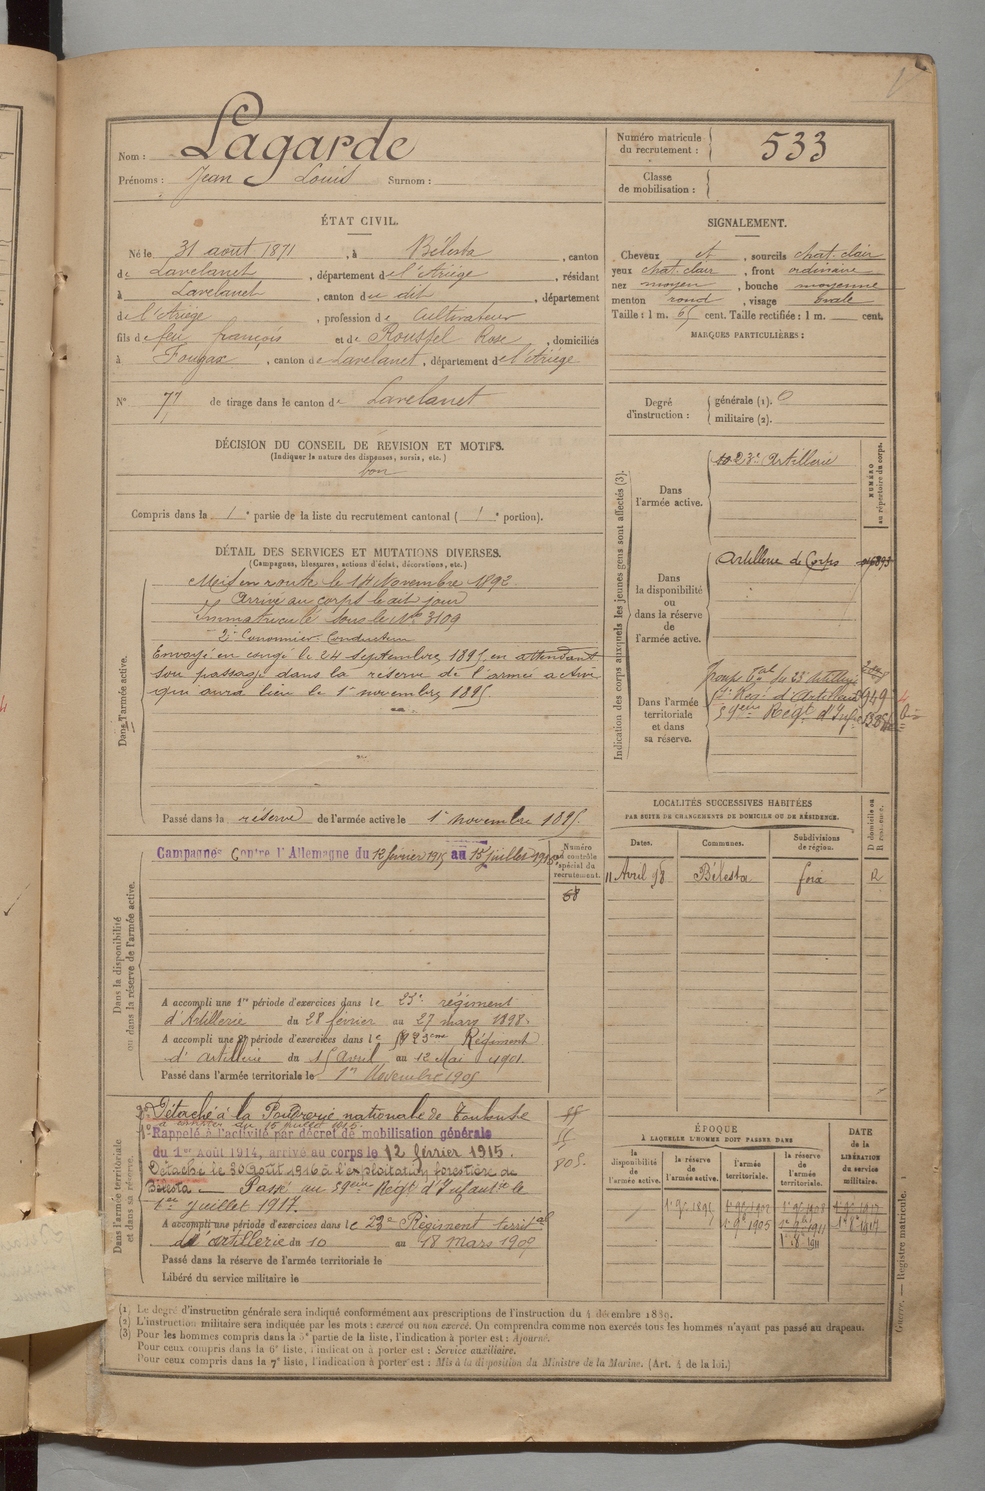 Nom : Lagarde
Prénoms : Jean Louis Surnom :
Numéro matricule du recrutement : 533
Classe de mobilisation :
ÉTAT CIVIL.
Né le 31 août 1871, à Bélesta, canton
de Lavelanet, département de l'Ariège, résidant
à Lavelanet, canton du dit, département
de l'Ariège, profession de Cultivateur
fils de feu françois et de Rouffel Rose, domiciliés
à Fougax, canton de Lavelanet, département de l'Ariège
N° 77 de tirage dans le canton de Lavelanet
SIGNALEMENT.
Cheveux et, sourcils chat. clair
yeux chat. clair, front ordinaire
nez moyen, bouche moyenne
menton rond, visage ovale
Taille : 1 m. 65 cent. Taille rectifiée : 1 m. cent.
MARQUES PARTICULIÈRES :
Degré d'instruction : générale (1). 0
militaire (2).
DÉCISION DU CONSEIL DE REVISION ET MOTIFS.
(Indiquer la nature des dispenses, sursis, etc.)
bon
Compris dans la 1e partie de la liste du recrutement cantonal (1e portion).
DÉTAIL DES SERVICES ET MUTATIONS DIVERSES.
(Campagnes, blessures, actions d'éclat, décorations, etc.)
Dans l'armée active.
Mis en route le 14 Novembre 1892.
Arrivé au corps le dit jour
Immatriculé sous le No 3109
2e Canonnier Conducteur
Envoyé en congé le 24 septembre 1895 en attendant
son passage dans la réserve de l'armée active
qui aura lieu le 1er novembre 1895
Passé dans la réserve de l'armée active le 1er novembre 1895.
Indication des corps auxquels les jeunes gens sont affectés (3).
NUMÉRO au répertoire du corps.
Dans l'armée active.
23e Artillerie
Dans la disponibilité ou dans la réserve de l'armée active.
Artillerie de Corps
Dans l'armée territoriale et dans sa réserve.
Régt d'Artillerie 949
59eme Régt d'Infie
LOCALITÉS SUCCESSIVES HABITÉES
PAR SUITE DE CHANGEMENTS DE DOMICILE OU DE RÉSIDENCE.
Dates. Communes. Subdivisions de région. D domicile ou R résidence.
11 Avril 98 Bélesta foix R
Dans la disponibilité ou dans la réserve de l'armée active.
Campagnes Contre l'Allemagne du 12 février 1915 au 15 juillet
Numéro au contrôle spécial du recrutement.
68
A accompli une 1re période d'exercices dans le 23e régiment
d'Artillerie du 28 février au 27 mars 1898.
A accompli une 2e période d'exercices dans le 23eme Régiment
d'artillerie du 15 Avril au 12 Mai 1901.
Passé dans l'armée territoriale le 1er Novembre 1905
Dans l'armée territoriale et dans sa réserve.
2° Détaché à la Poudrerie nationale de Toulouse
à compter du 15 juillet 1915.
1° Rappelé à l'activité par décret de mobilisation générale
du 1er Août 1914, arrivé au corps le 12 février 1915.
Détaché le 30 août 1916 à l'exploitation forestière de
Bélesta. Passé au 59eme Régt d'Infanterie le
1er Juillet 1917.
A accompli une période d'exercices dans le 23e Régiment territal
d'artillerie du 10 au 18 mars 1909
Passé dans la réserve de l'armée territoriale le
Libéré du service militaire le
805.
ÉPOQUE
À LAQUELLE L'HOMME DOIT PASSER DANS
la disponibilité de l'armée active.
la réserve de l'armée active.
l'armée territoriale.
la réserve de l'armée territoriale.
DATE de la LIBÉRATION du service militaire.
Guerre. — Registre matricule.
(1) Le degré d'instruction générale sera indiqué conformément aux prescriptions de l'instruction du 4 décembre 1889.
(2) L'instruction militaire sera indiquée par les mots : exercé ou non exercé. On comprendra comme non exercés tous les hommes n'ayant pas passé au drapeau.
(3) Pour les hommes compris dans la 5e partie de la liste, l'indication à porter est : Ajourné.
Pour ceux compris dans la 6e liste, l'indication à porter est : Service auxiliaire.
Pour ceux compris dans la 7e liste, l'indication à porter est : Mis à la disposition du Ministre de la Marine. (Art. 4 de la loi.)